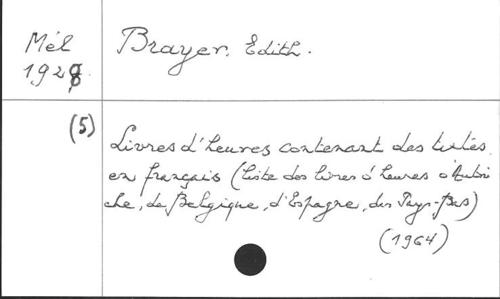 Mél Brayer, Edith.
1928
(5)
Livres d'heures contenant des textes
en français (liste des livres d'heures d'Autri
che, de Belgique, d'Espagne, des Pays-Bas)
(1964)